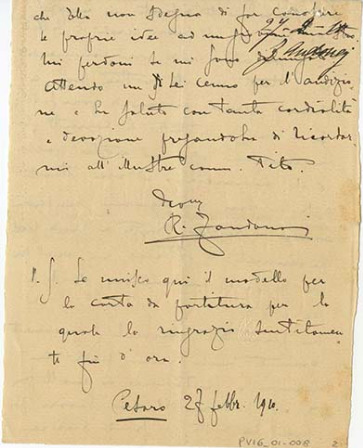 che Ella non sdegna di far conoscere
le proprie idee ad un
Mi perdoni se mi sono
Attendo un di Lei cenno per l'audizio-
ne e La saluto con tanta cordialità
e devozione pregandola di ricordar-
mi all'Illustre comm. Tito.
Devmo
R. Zandonai
P.S. Le unisco qui il modello per
la carta da partitura per la
quale la ringrazio sentitamen
te fin d'ora.
Pesaro 27 febbr. 1910.
PV16_01-008 2